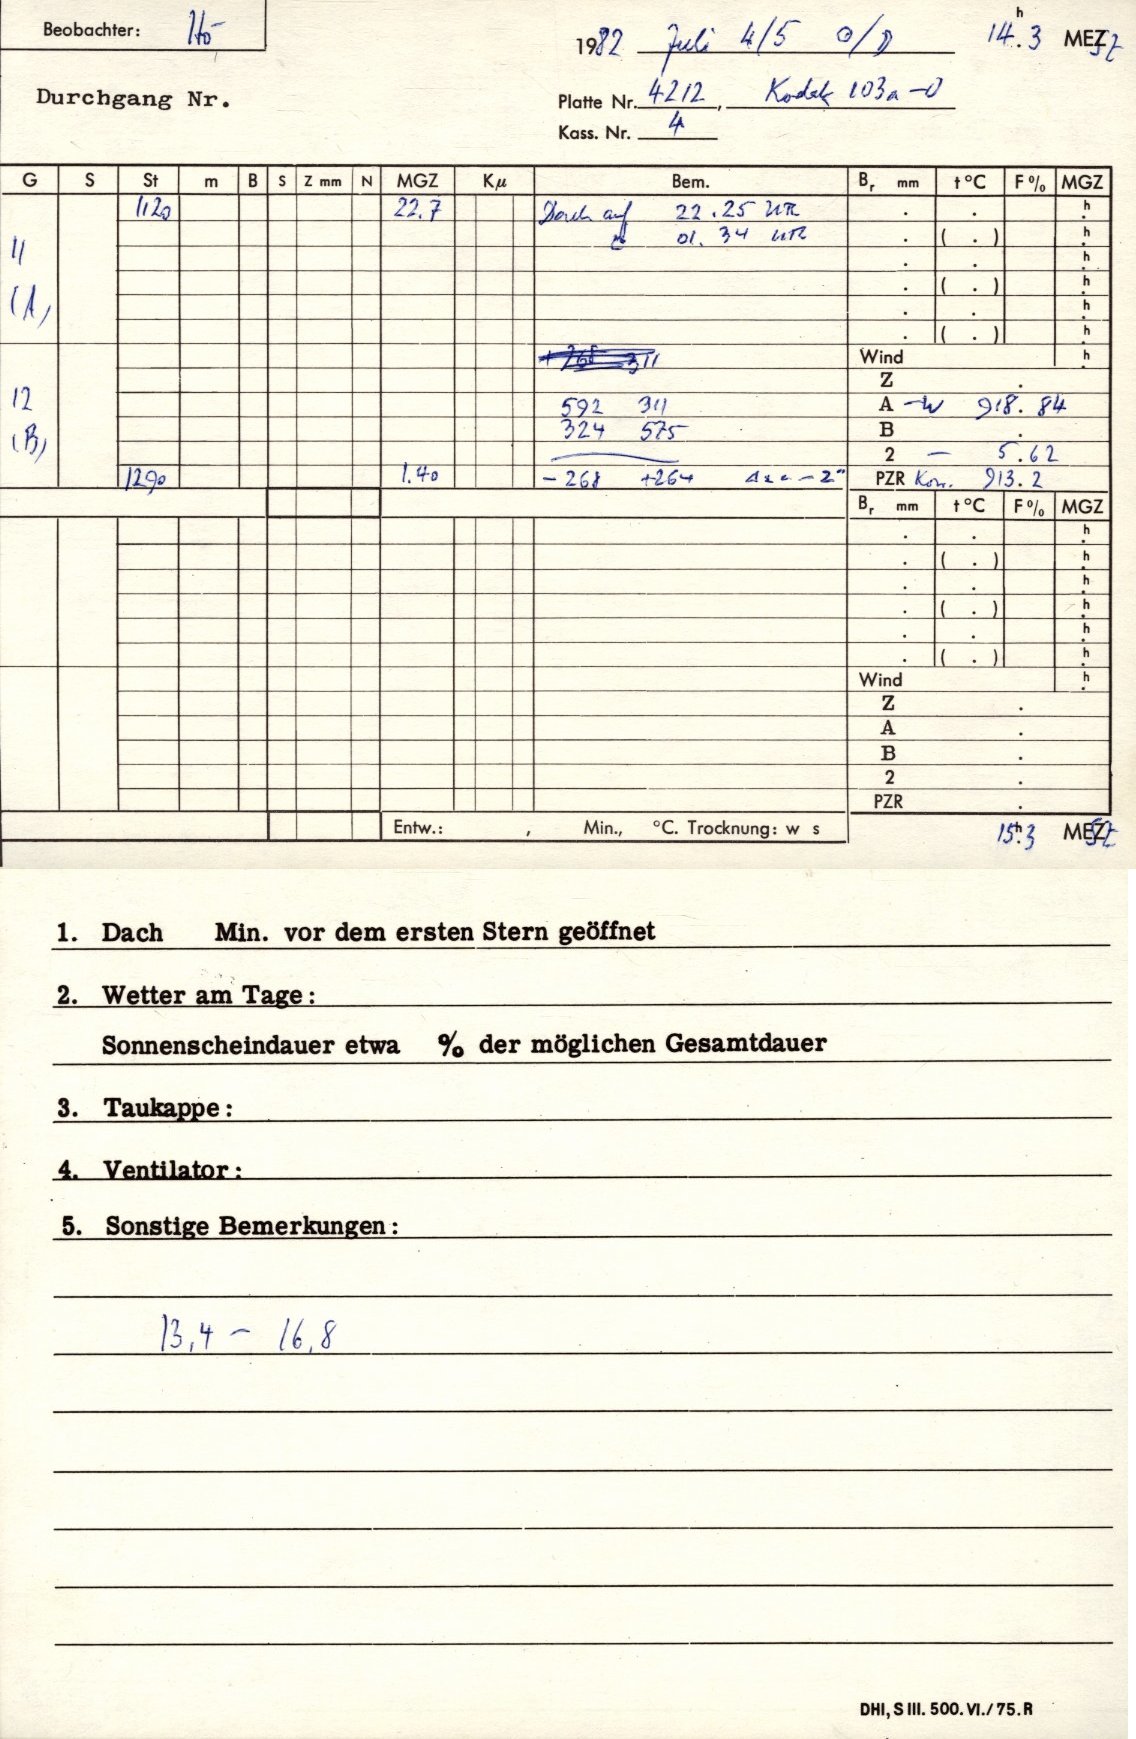 Beobachter: Hö
1982 Juli 4/5 ☉/D 14.ʰ3 MESZ
Durchgang Nr.
Platte Nr. 4212, Kodak 103a-O
Kass. Nr. 4
G S St m B S Z mm N MGZ Kμ Bem. Bᵣ mm t°C F% MGZ
1120 22.7 Dach auf 22.25 UTC . . h
11 01.34 UTC . ( . ) h
. . h
(A) . ( . ) h
. . h
. ( . ) h
311 Wind h
Z .
12 592 311 A -W 918.84
(B) 324 575 B .
2 - 5.62
1290 1.40 -268 +264 -2" PZR Korr. 913.2
Bᵣ mm t°C F% MGZ
. . h
. ( . ) h
. . h
. ( . ) h
. . h
. ( . ) h
Wind h
Z .
A .
B .
2 .
PZR .
Entw.: , Min., °C. Trocknung: w s
15.ʰ3 MESZ
1. Dach Min. vor dem ersten Stern geöffnet
2. Wetter am Tage:
Sonnenscheindauer etwa % der möglichen Gesamtdauer
3. Taukappe:
4. Ventilator:
5. Sonstige Bemerkungen:
13,4 - 16,8
DHI, S III. 500. VI. / 75. R